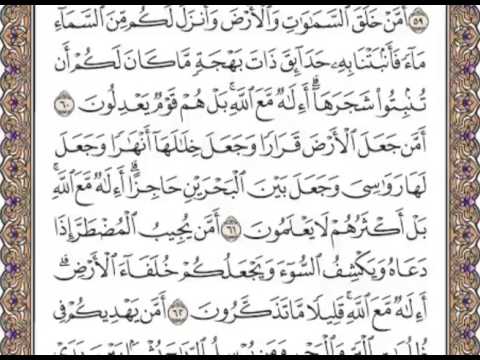 ٥٩ أَمَّنْ خَلَقَ السَّمَٰوَٰتِ وَالْأَرْضَ وَأَنزَلَ لَكُم مِّنَ السَّمَاءِ
مَاءً فَأَنبَتْنَا بِهِ حَدَائِقَ ذَاتَ بَهْجَةٍ مَّا كَانَ لَكُمْ أَن
تُنبِتُوا شَجَرَهَا ۗ أَءِلَٰهٌ مَّعَ اللَّهِ ۚ بَلْ هُمْ قَوْمٌ يَعْدِلُونَ ٦٠
أَمَّن جَعَلَ الْأَرْضَ قَرَارًا وَجَعَلَ خِلَٰلَهَا أَنْهَٰرًا وَجَعَلَ
لَهَا رَوَٰسِىَ وَجَعَلَ بَيْنَ الْبَحْرَيْنِ حَاجِزًا ۗ أَءِلَٰهٌ مَّعَ اللَّهِ ۚ
بَلْ أَكْثَرُهُمْ لَا يَعْلَمُونَ ٦١ أَمَّن يُجِيبُ الْمُضْطَرَّ إِذَا
دَعَاهُ وَيَكْشِفُ السُّوءَ وَيَجْعَلُكُمْ خُلَفَاءَ الْأَرْضِ ۗ
أَءِلَٰهٌ مَّعَ اللَّهِ ۚ قَلِيلًا مَّا تَذَكَّرُونَ ٦٢ أَمَّن يَهْدِيكُمْ فِى